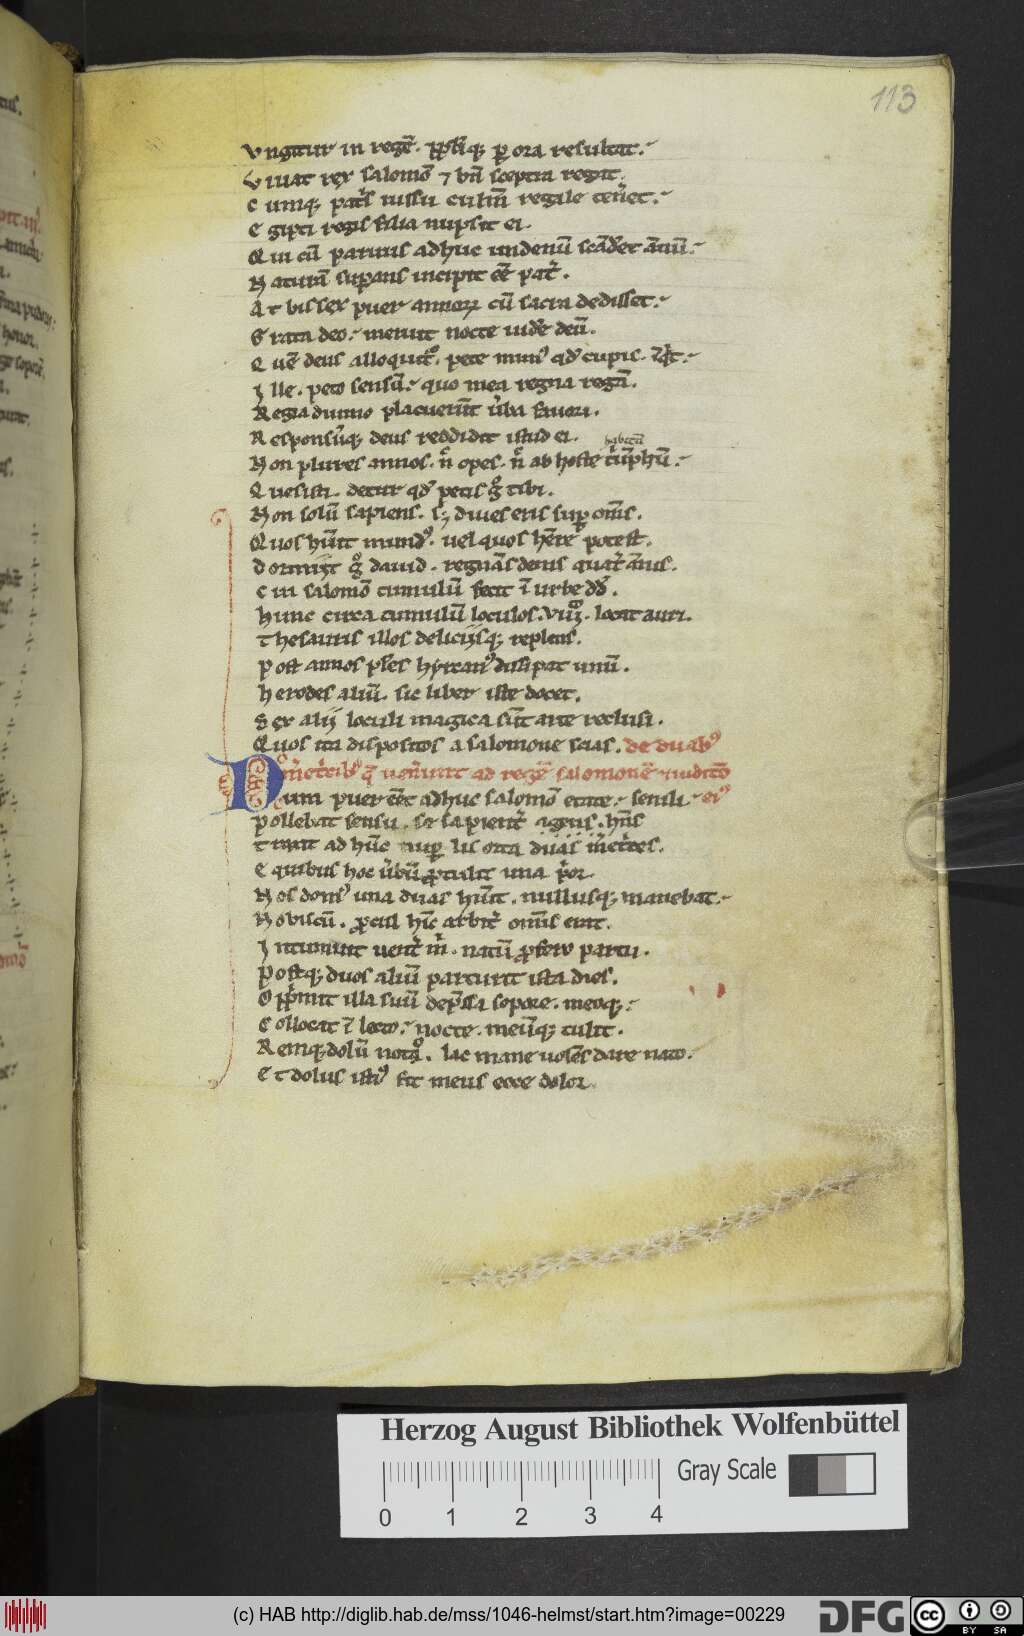 113
Vngitur in regē. pplīq; ꝑ ora resultat.
Viuat rex salomō ⁊ bn̄ sceptra regit.
Cumq; pat͛s iussu culm̄ regale ten̄et.
Egipti regis filia nupsit ei.
Qui cū paruus adhuc undenū scād͛et ānū.
Naturā suꝑans incipit eē pat͛.
At bis sex puer annoꝝ cū sacra dedisset.
Grata deo. meruit nocte uid͛e deū.
Quē deus alloquit͛. pete munꝰ qd̄ cupis.
Ille. peto sensū. quo mea regna regā.
Regia diuino placuer̄t u͛ba fauori.
Responsūq; deus reddidit istud ei.
habitū
Non plures annos. n̄ opes. n̄ ab hoste t͛ūphū.
Quesisti. detur qd̄ petis g͛ tibi.
Non solū sapiens. sꝫ diues eris suꝑ om̄s.
Quos hūit mundꝰ. uel quos hēre potest.
Dormijt g͛ dauid. regnās denis quat͛ ānis.
Cui salomō tumulū fecit ī urbe dd̄.
hunc circa tumulū loculos. viii. locat auri.
Thesauris illos delicijsq; replens.
Post annos pl͛es hyrcanꝰ dissipat unū.
herodes aliū. sic liber iste docet.
Sex alij loculi magica sūt arte reclusi.
Quos ita dispositos a salomone scias. de duabꝰ
m͛et͛cibꝰ q̄ uen͛unt ad regē salomonē ⁊ iudicō
Dum puer eēt adhuc salomō etate. senili. eiꝰ
Pollebat sensu. sꝫ sapient͛ agens. hn̄s
T runt ad hūc nuꝑ lis orta duas m͛et͛ces.
E quibus hoc u͛bū ꝓtulit una p͛or.
Nos domꝰ una duas hūit. nullusq; manebat.
Nobiscū. ꝓcul hīc arbit͛ om̄is erat.
Intumuit uent͛ m͛. natū ꝓfero partu.
Postq; duos aliū parturit ista dies.
Opp͛mit illa suū dep͛ssa sopore. meoq;
Collocat ī lecto. nocte. meūq; tulit.
Remq; dolū noto͛. lac mane uolēs dare nato.
Et dolus istiꝰ fit meus ecce dolor.
Herzog August Bibliothek Wolfenbüttel
Gray Scale
0 1 2 3 4
(c) HAB http://diglib.hab.de/mss/1046-helmst/start.htm?image=00229
DFG
cc BY SA